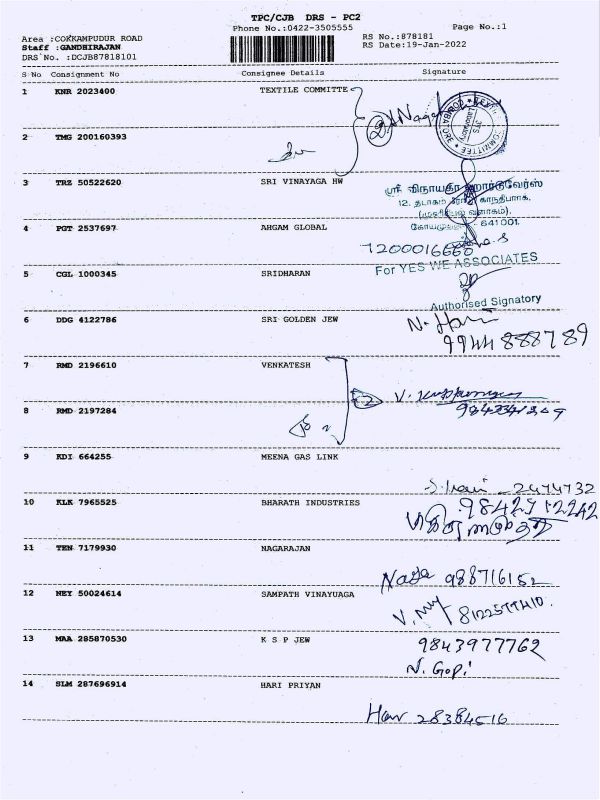 TPC/CJB DRS - PC2
Phone No.:0422-3505555
Page No.:1
Area :COKKAMPUDUR ROAD
Staff :GANDHIRAJAN
DRS No. :DCJB87818101
RS No.:878181
RS Date:19-Jan-2022
S No Consignment No Consignee Details Signature
1 KNR 2023400 TEXTILE COMMITTE
2 TMG 200160393
3 TRZ 50522620 SRI VINAYAGA HW
ஸ்ரீ விநாயகா ஹார்டுவேர்ஸ்
641001.
4 PGT 2537697 AHGAM GLOBAL
7200016660
For YES WE ASSOCIATES
5 CGL 1000345 SRIDHARAN
Authorised Signatory
6 DDG 4122786 SRI GOLDEN JEW
N. Hari
9944888789
7 RMD 2196610 VENKATESH
2
8 RMD 2197284
9 KDI 664255 MEENA GAS LINK
2474732
10 KLK 7965525 BHARATH INDUSTRIES
11 TEN 7179930 NAGARAJAN
Naga 988716152
12 NEY 50024614 SAMPATH VINAYUAGA
13 MAA 285870530 K S P JEW
9843977762
N. Gopi
14 SLM 287696914 HARI PRIYAN
Hari 28384516